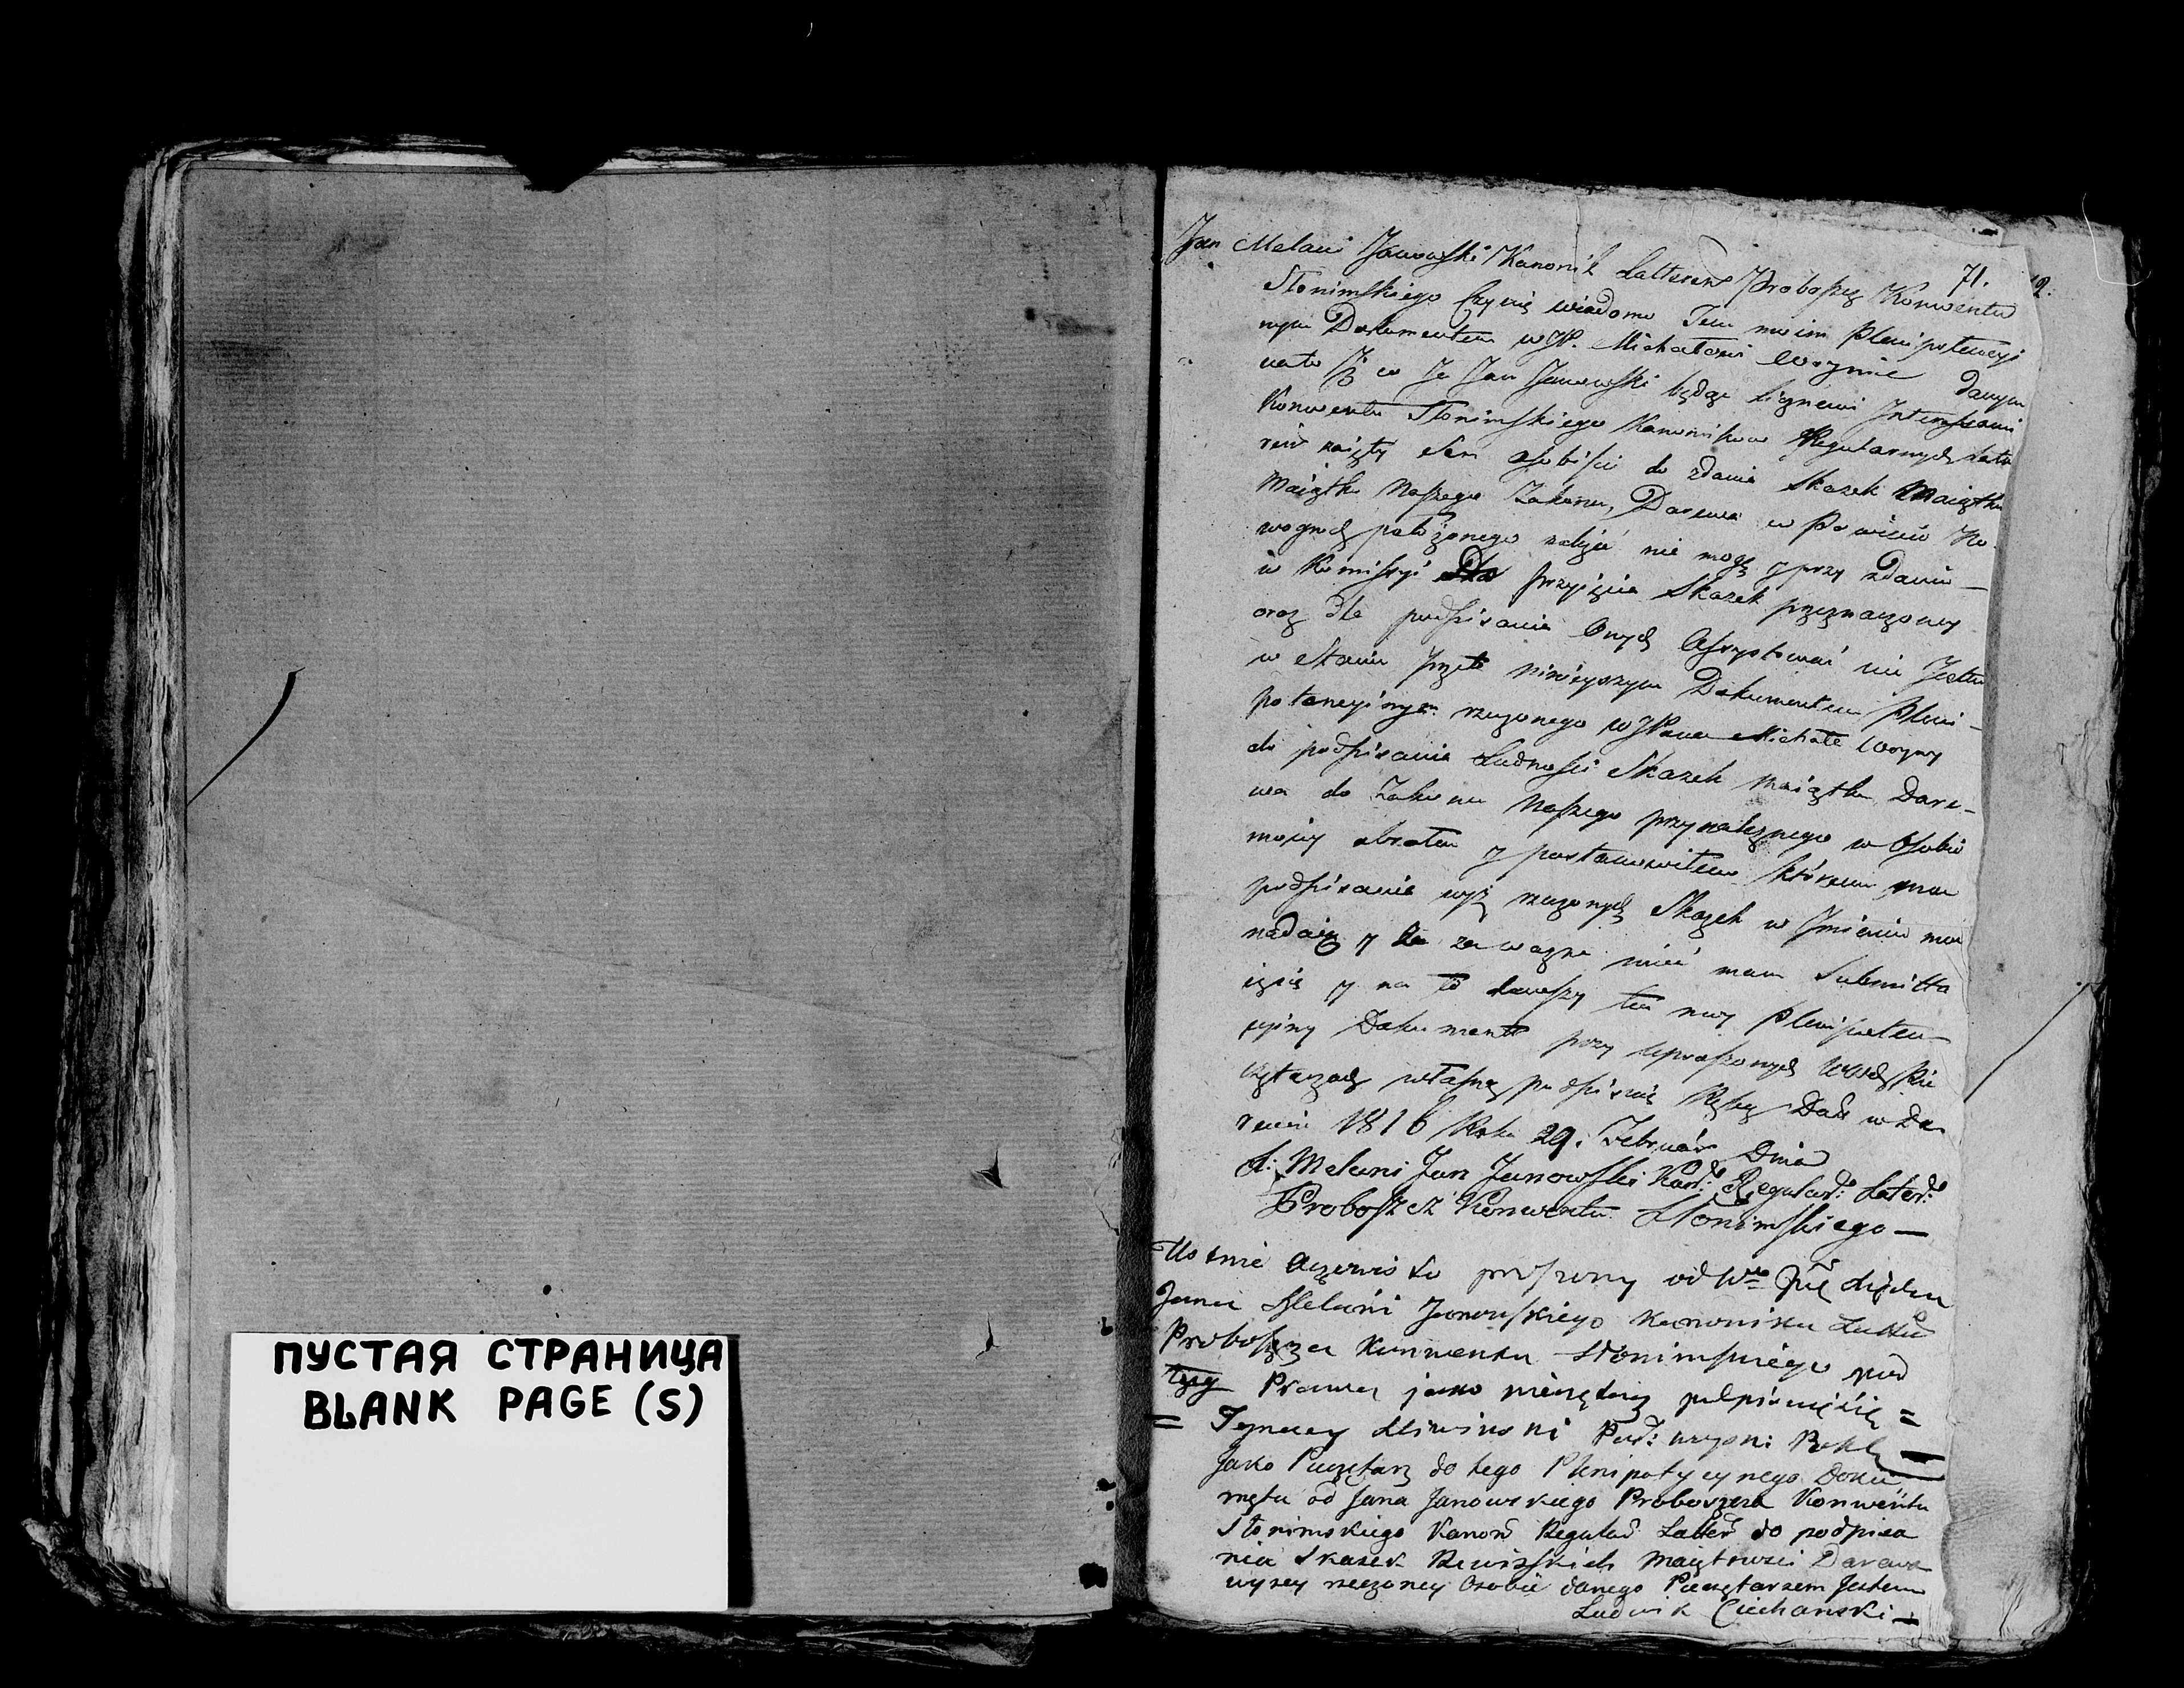 ПУСТАЯ СТРАНИЦА
BLANK PAGE (S)
71. 12.
Jan Melani Janowski Kanonik Latteran Proboszcz Konwentu
Słonimskiego Czynię wiadomo Tem moim Plenipotencyj
nym Dokumentem WJP. Michałowi Woynie danym
na to Jż co Ja Jan Janowski będąc Jnteressami
Konwentu Słonimskiego Kanonikow Regularnych Late
ran zaięty sam osobiscie do zdania Skazek Maiątku
Maiątku Naszego Zakonu, Darewa w Powiecie No
wogrod położonego ziechać nie mogę y przy zdaniu
w Komissyi Dla przyięcia Skazek przeznaczoney
oraz dla podpisania Onych Assystować nie Jestem
w stanie przeto ninieyszym Dokumentem Pleni-
potencyinym rzeczonego WJPana Michała Woynę
do podpisania Ludnosci Skazek Maiątku Dare-
wa do Zakonu Naszego przynależnego w Osobie
moiey obrałem y postanowiłem któremu
podpisanie wyż rzeczonych Skazek w Jmieniu
nadaię y za ważne mieć mam Submitta
ięsię y na to dawszy ten moy Plenipoten
cyiny Dokument przy uproszonych WWch Pie
czętarzach własną podpisuię Ręką Dat w Da
rewie 1816 Roku 29. Februar Dnia
X: Melani Jan Janowski Kan: Regular: Later:
Proboszcz Konwentu Słonimskiego —
Ustnie Oczewisto proszony od Wgo Jmę Xiędza
Jana Melani Janowskiego Kanonika Latter
Proboszcza Konwentu Słonimskiego pod
Prawa jako pieczętarz podpisuięsię =
= Jgnacy Sliwinski
Jako Pieczętarz do tego Plenipotęcynego Doku
mętu od Jana Janowskiego Proboszcza Konwentu
Słonimskiego Kanon Regular Latter do podpisa
nia Skazek Rewizskich maiętnosci Darewa
wyżey rzeczoney Osobie danego Pieczętarzem Jestem
Ludwik Ciechanski —